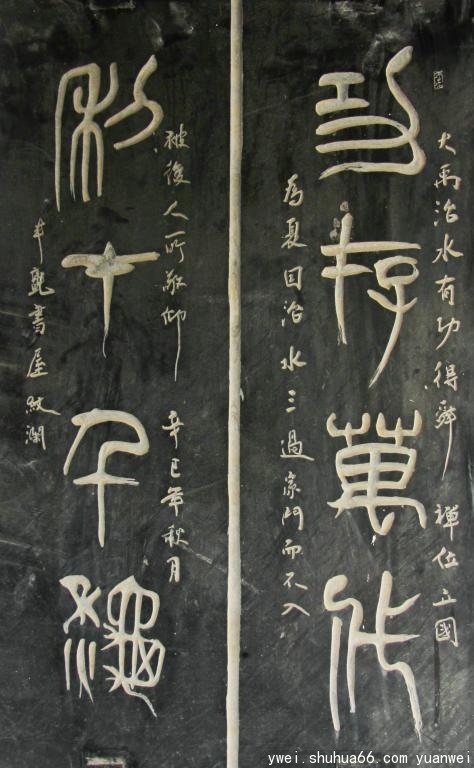 大禹治水有功得舜禪位立國
功存萬代
為夏因治水三過家門而不入
被後人所敬仰 辛巳年秋月
利在千秋
書屋
ywei.shuhua66.com yuanwei